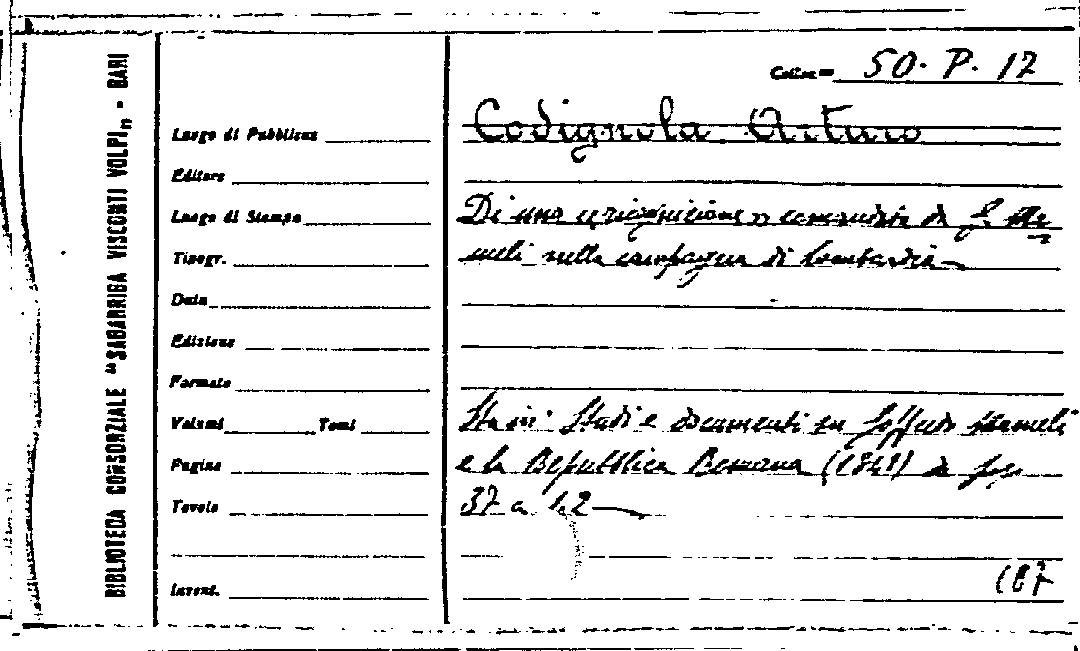 BIBLIOTECA CONSORZIALE "SAGARRIGA VISCONTI VOLPI" - BARI
Colloc. 50. P. 17
Luogo di Pubblicaz.
Codignola Arturo
Editore
Luogo di Stampa
Di una comandata da G. Ma-
Tipogr.
meli nella campagna di Lombardia
Data
Edizione
Formato
Volumi Tomi
Sta in: Studi e documenti su Goffredo Mameli
Pagine
e la Repubblica Romana (1849) da pag.
Tavole
37 a 42
Invent.